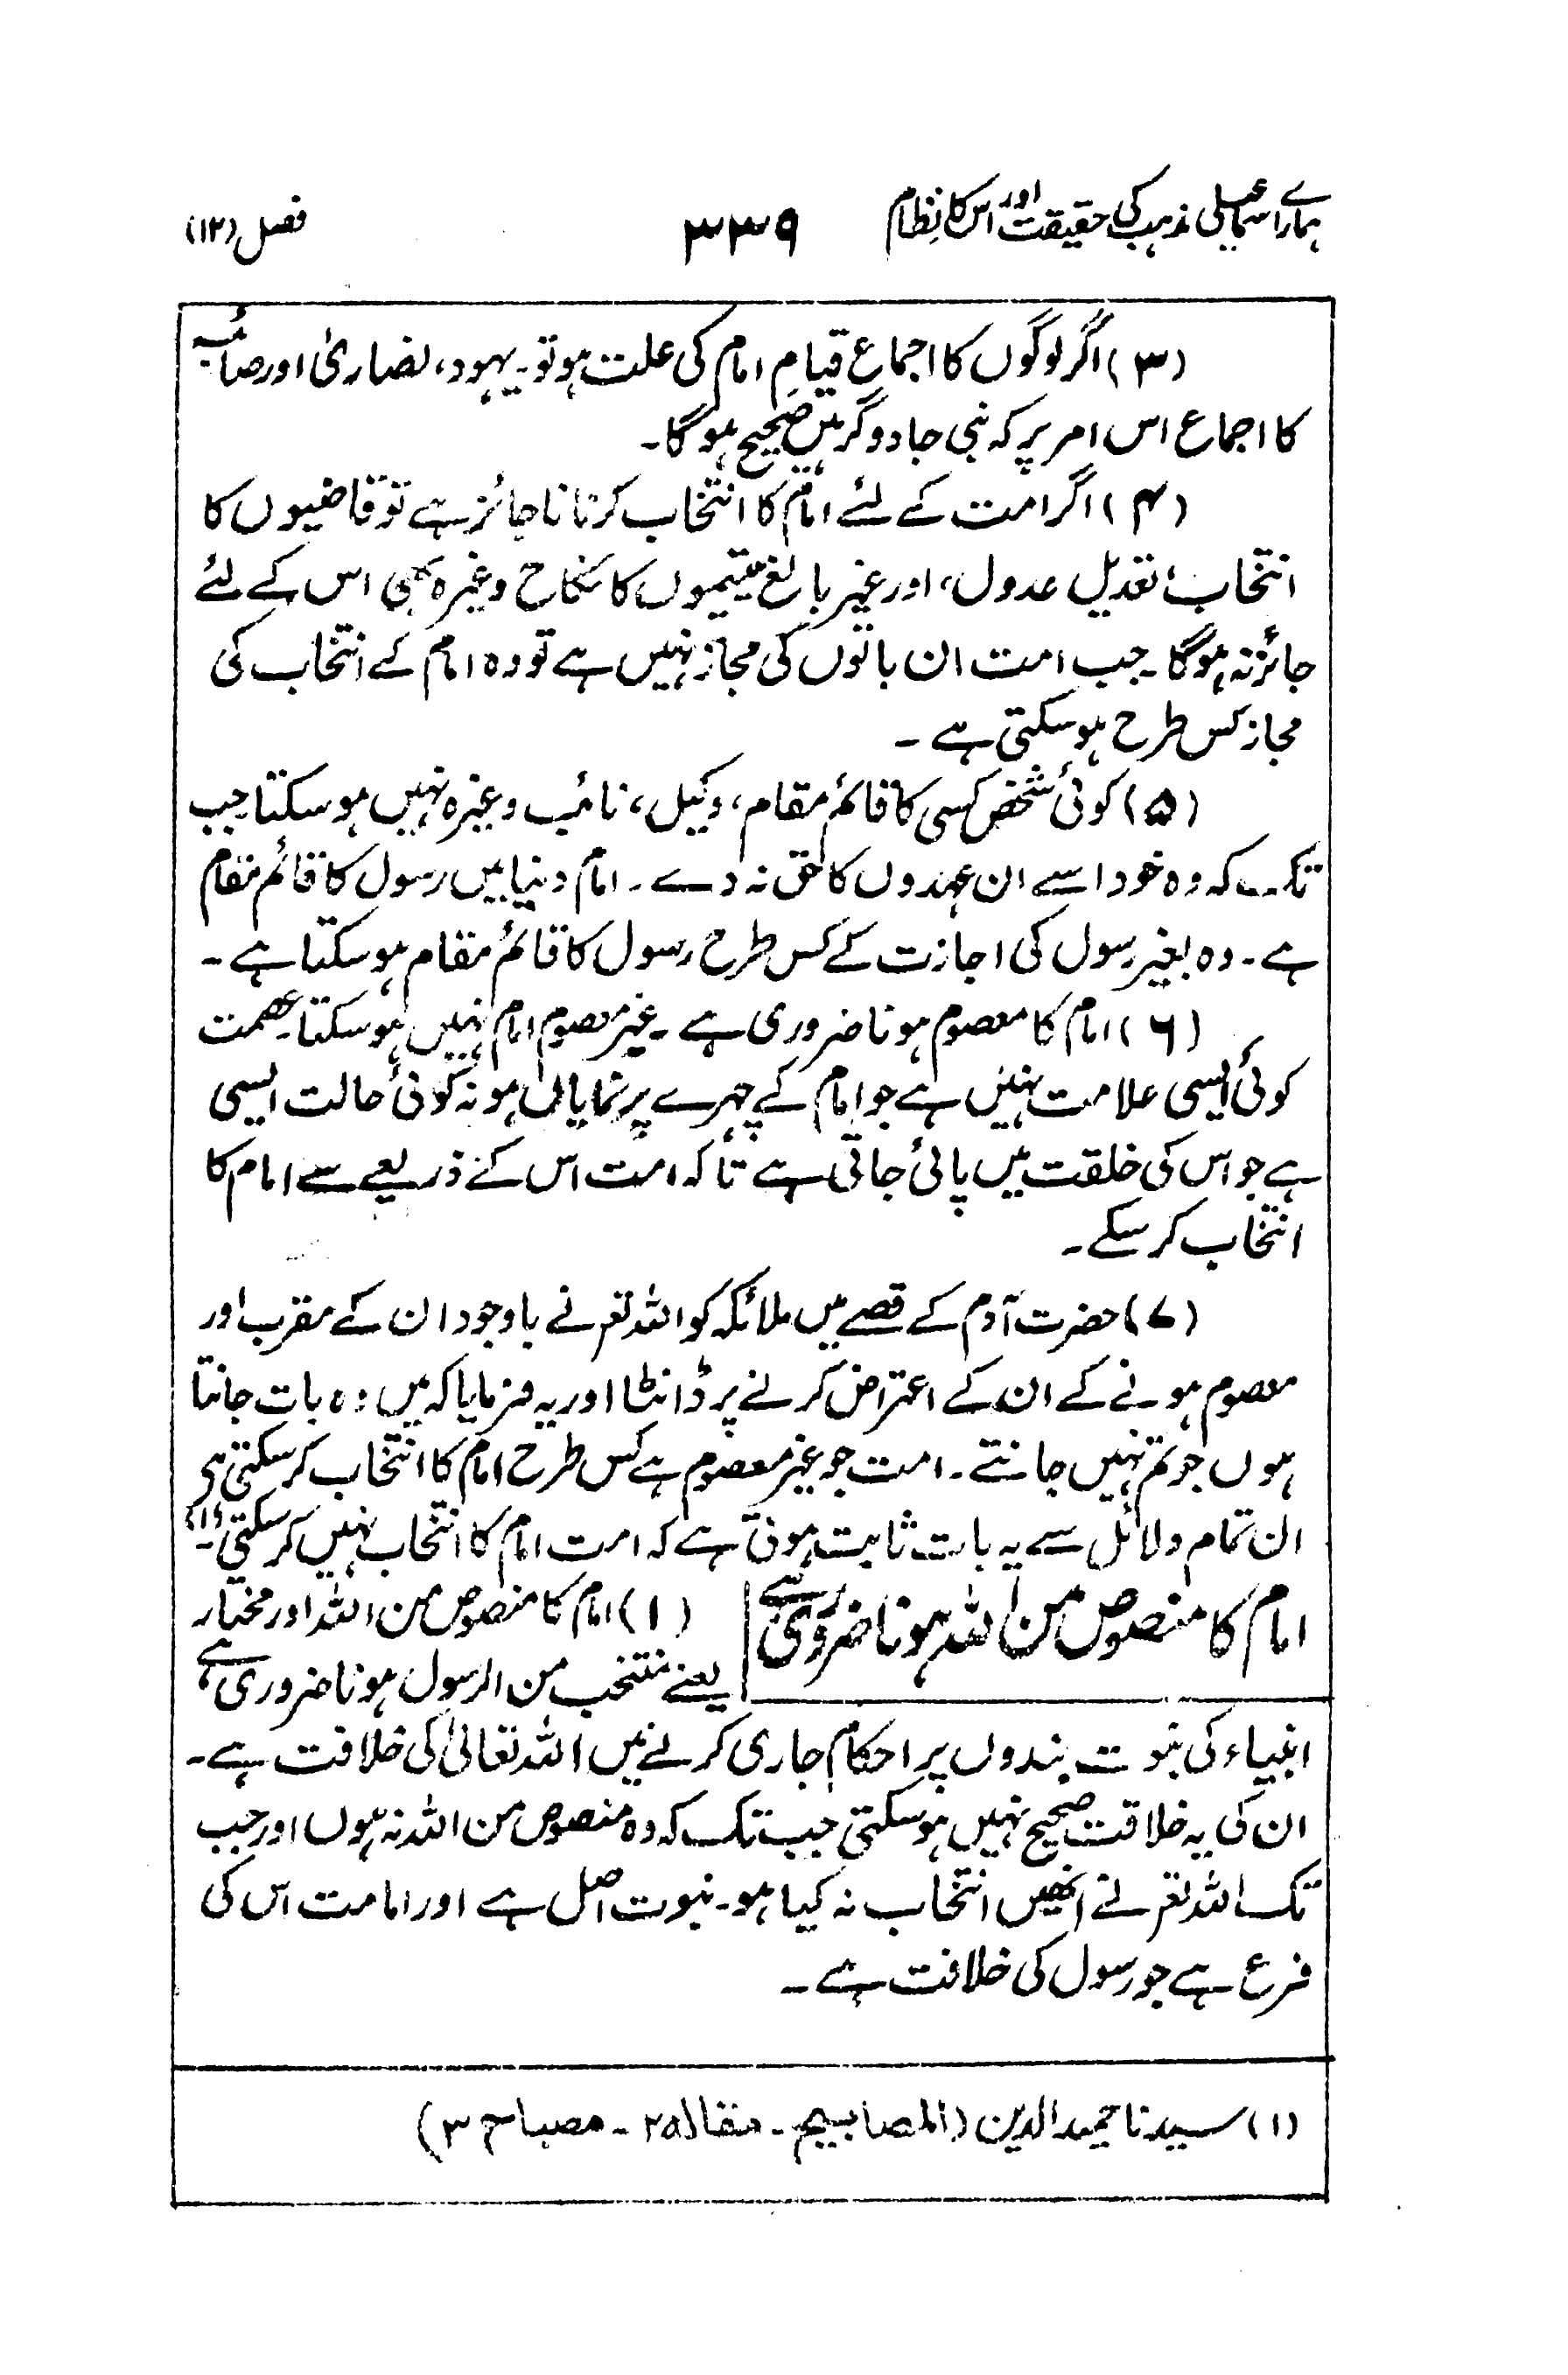 ہمارے اسماعیلی مذہب کی حقیقت اور اس کا نظام ۳۳۹ فصل (۱۲)
(۳) اگر لوگوں کا اجماع قیامِ امام کی علت ہو تو۔ یہود، نصاریٰ اور صائبہ
کا اجماع اس امر پر کہ نبی جادوگر ہیں صحیح ہوگا۔
(۴) اگر امت کے لئے امام کا انتخاب کرنا ناجائز ہے تو قاضیوں کا
انتخاب، تعدیل عدول، اور غیر بالغ یتیموں کا نکاح وغیرہ بھی اس کے لئے
جائز نہ ہوگا۔ جب امت ان باتوں کی مجاز نہیں ہے تو وہ امام کے انتخاب کی
مجاز کس طرح ہوسکتی ہے۔
(۵) کوئی شخص کسی کا قائم مقام، وکیل، نائب وغیرہ نہیں ہو سکتا جب
تک کہ وہ خود اسے ان عہدوں کا حق نہ دے۔ امام دنیا میں رسول کا قائم مقام
ہے۔ وہ بغیر رسول کی اجازت کے کس طرح رسول کا قائم مقام ہو سکتا ہے۔
(۶) امام کا معصوم ہونا ضروری ہے۔ غیر معصوم امام نہیں ہو سکتا۔ عصمت
کوئی ایسی علامت نہیں ہے جو امام کے چہرے پر نمایاں ہو نہ کوئی حالت ایسی
ہے جو اس کی خلقت میں پائی جاتی ہے تاکہ امت اس کے ذریعے سے امام کا
انتخاب کر سکے۔
(۷) حضرت آدم کے قصے میں ملائکہ کو اللہ تعم نے باوجود ان کے مقرب اور
معصوم ہونے کے ان کے اعتراض کرنے پر ڈانٹا اور یہ فرمایا کہ میں وہ بات جانتا
ہوں جو تم نہیں جانتے۔ امت جو غیر معصوم ہے کس طرح امام کا انتخاب کر سکتی ہی
ان تمام دلائل سے یہ بات ثابت ہوتی ہے کہ امت امام کا انتخاب نہیں کر سکتی۔(۱)
امام کا منصوص من اللہ ہونا ضروری ہے
(۱) امام کا منصوص من اللہ اور مختار
یعنے منتخب من الرسول ہونا ضروری ہے،
انبیاء کی نبوت بندوں پر احکام جاری کرنے میں اللہ تعالیٰ کی خلافت ہے۔
ان کی یہ خلافت صحیح نہیں ہو سکتی جب تک کہ وہ منصوص من اللہ نہ ہوں اور جب
تک اللہ تعم نے انھیں انتخاب نہ کیا ہو۔ نبوت اصل ہے اور امامت اس کی
فرع ہے جو رسول کی خلافت ہے۔
(۱) سیدنا حمید الدین (المصابیح۔ مقالہ ۲۵۔ مصباح ۳)